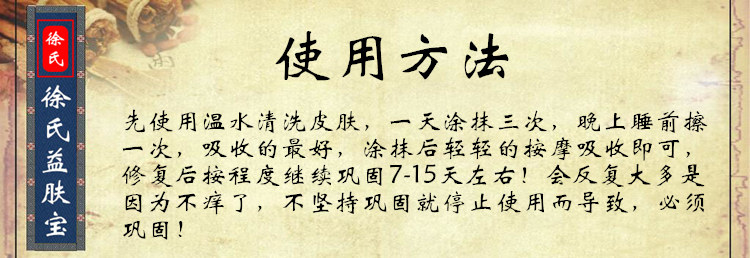 徐氏
徐氏益肤宝
使用方法
先使用温水清洗皮肤，一天涂抹三次，晚上睡前擦
一次，吸收的最好，涂抹后轻轻的按摩吸收即可，
修复后按程度继续巩固7-15天左右！会反复大多是
因为不痒了，不坚持巩固就停止使用而导致，必须
巩固！